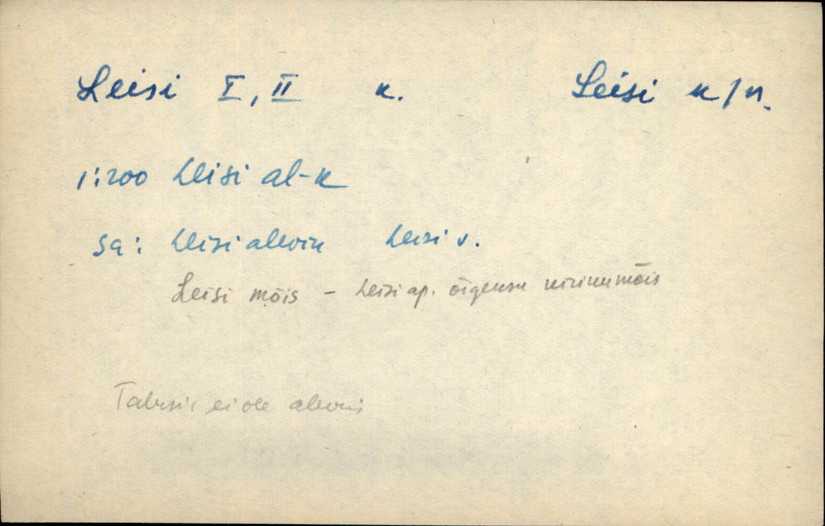 Leisi I, II k. Leisi k/n.
1:200 Leisi al-k
Sq: Leisi alevik Leisi v.
Leisi mõis – Leisi ap. õigeusu kirikumõis
ei ole alevis